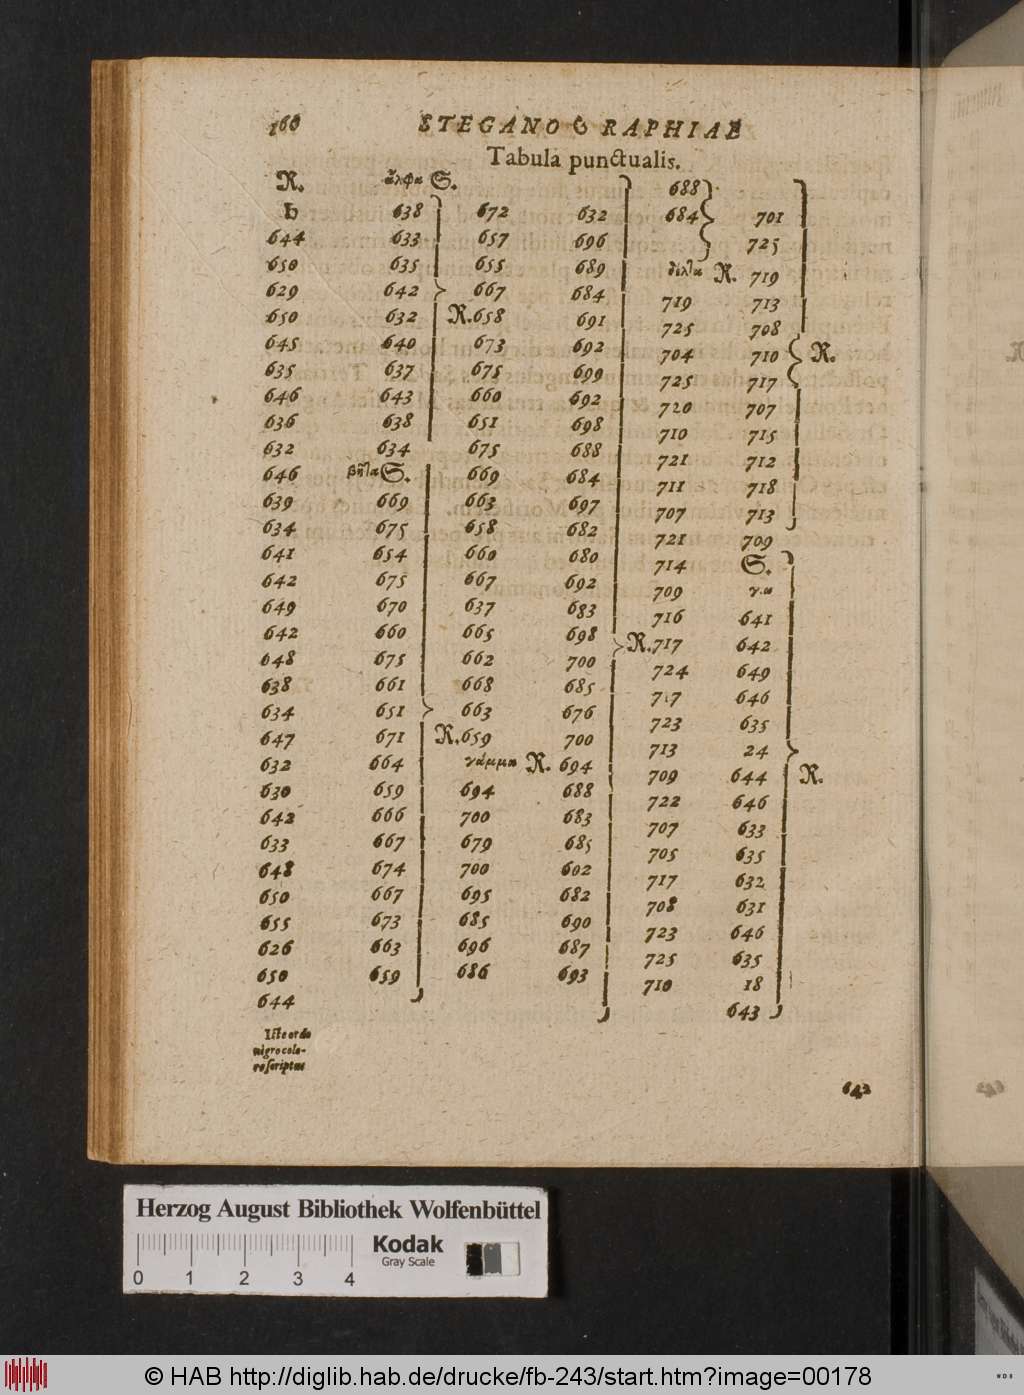 160 STEGANOGRAPHIAE
Tabula punctualis.
R. ἄλφα S. 688
♄ 638 672 632 684 701
644 633 657 696 725
650 635 655 689 δέλτα R. 719
629 642 667 684 719 713
650 632 R.658 691 725 708
645 640 673 692 704 710 R.
635 637 675 699 725 717
646 643 660 692 720 707
636 638 651 698 710 715
632 634 675 688 721 712
646 βῆτα S. 669 684 711 718
639 669 663 697 707 713
634 675 658 682 721 709
641 654 660 680 714 S.
642 675 667 692 709 γ.α
649 670 637 683 716 641
642 660 665 698 R.717 642
648 675 662 700 724 649
638 661 668 685 717 646
634 651 663 676 723 635
647 671 R.659 700 713 24
632 664 γάμμα R. 694 709 644 R.
630 659 694 688 722 646
642 666 700 683 707 633
633 667 679 685 705 635
648 674 700 602 717 632
650 667 695 682 708 631
655 673 685 690 723 646
626 663 696 687 725 635
650 659 686 693 710 18
644 643
Iste ordo
nigro colo-
re scriptus
642
Herzog August Bibliothek Wolfenbüttel
Kodak
Gray Scale
0 1 2 3 4
© HAB http://diglib.hab.de/drucke/fb-243/start.htm?image=00178